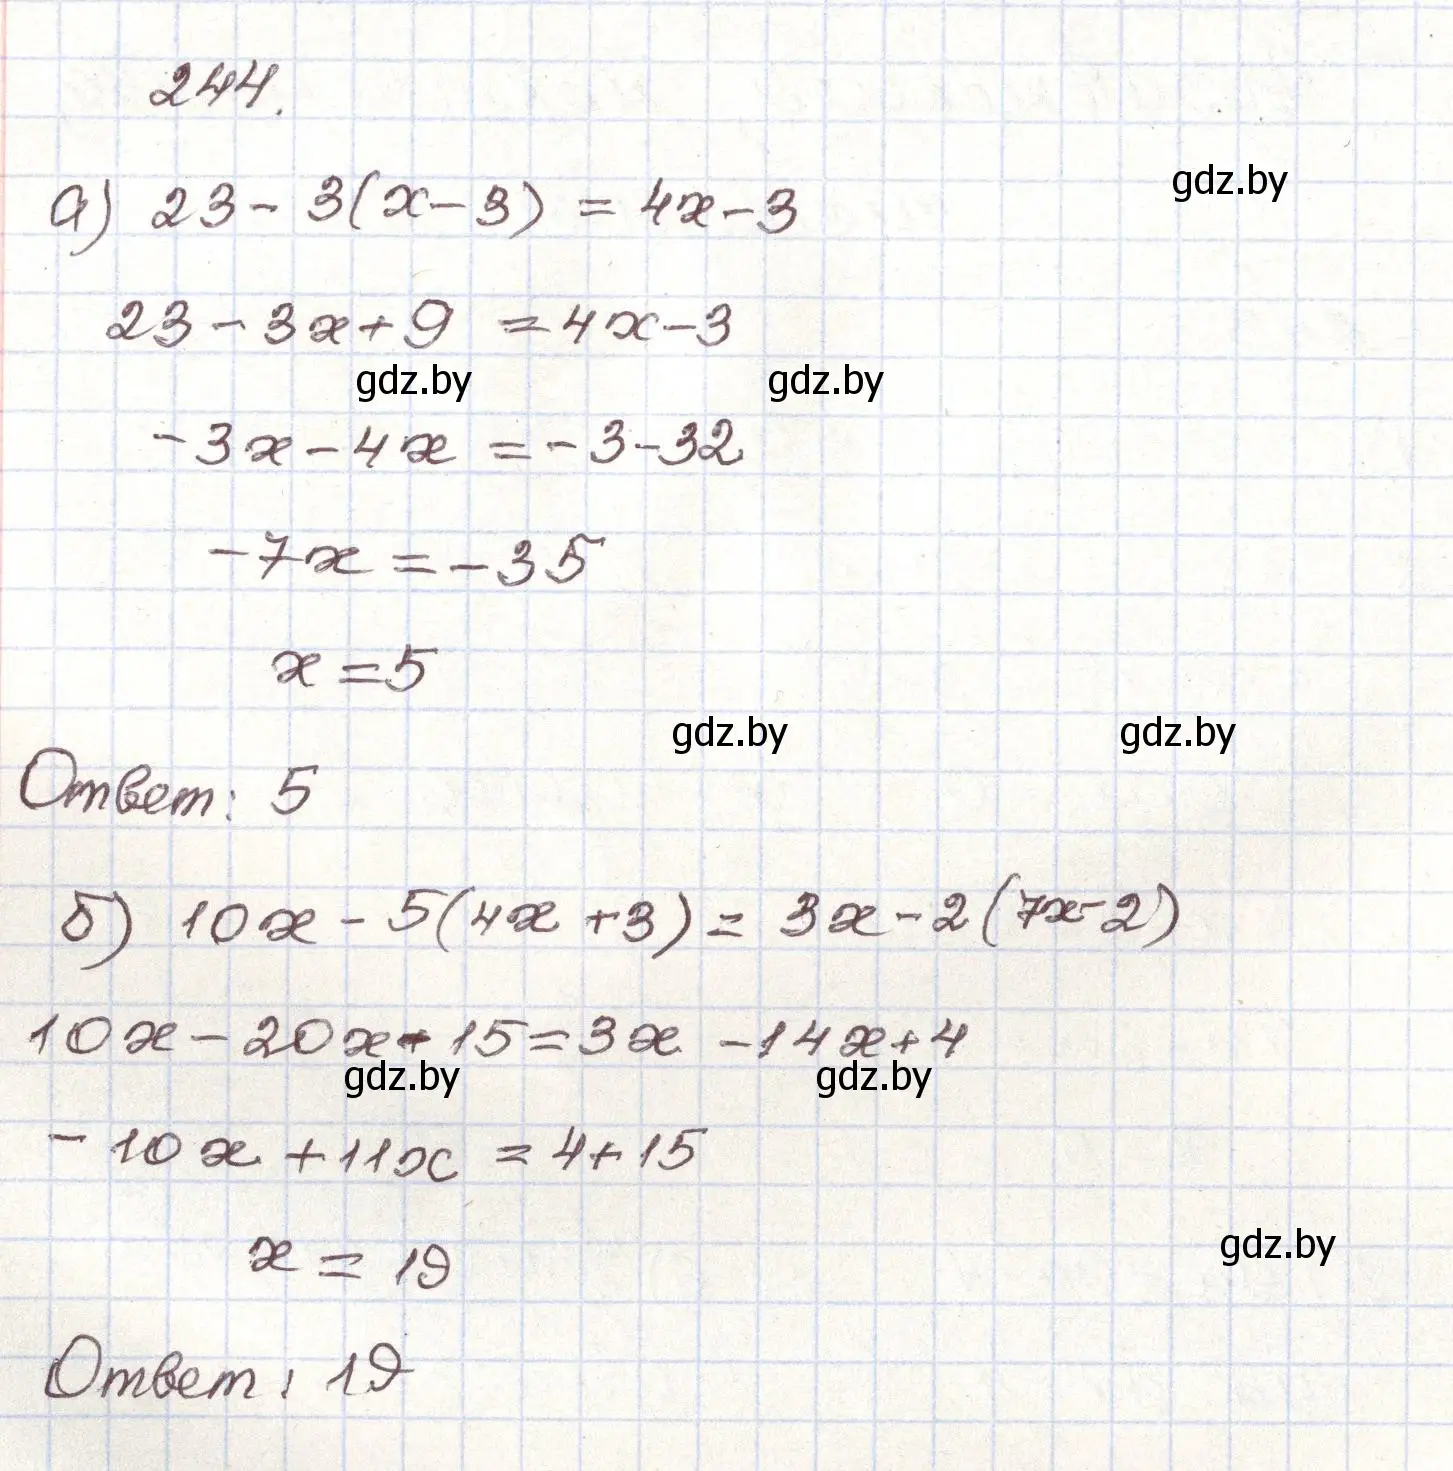 244.
gdz.by
а) 23 - 3(x - 3) = 4x - 3
23 - 3x + 9 = 4x - 3
gdz.by gdz.by
-3x - 4x = -3 - 32
-7x = -35
x = 5
gdz.by gdz.by
Ответ: 5
б) 10x - 5(4x + 3) = 3x - 2(7x - 2)
10x - 20x - 15 = 3x - 14x + 4
gdz.by gdz.by
-10x + 11x = 4 + 15
gdz.by
x = 19
Ответ: 19